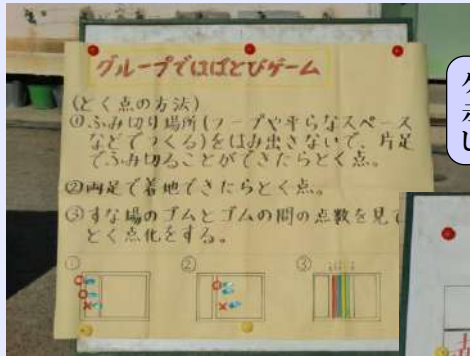 グループではばとびゲーム
(とく点の方法)
①ふみ切り場所(フープや平らなスペース
などでつくる)をはみ出さないで、片足
でふみ切ることができたらとく点。
②両足で着地できたらとく点。
③すな場のゴムとゴムの間の点数を見て
とく点化をする。
① ② ③